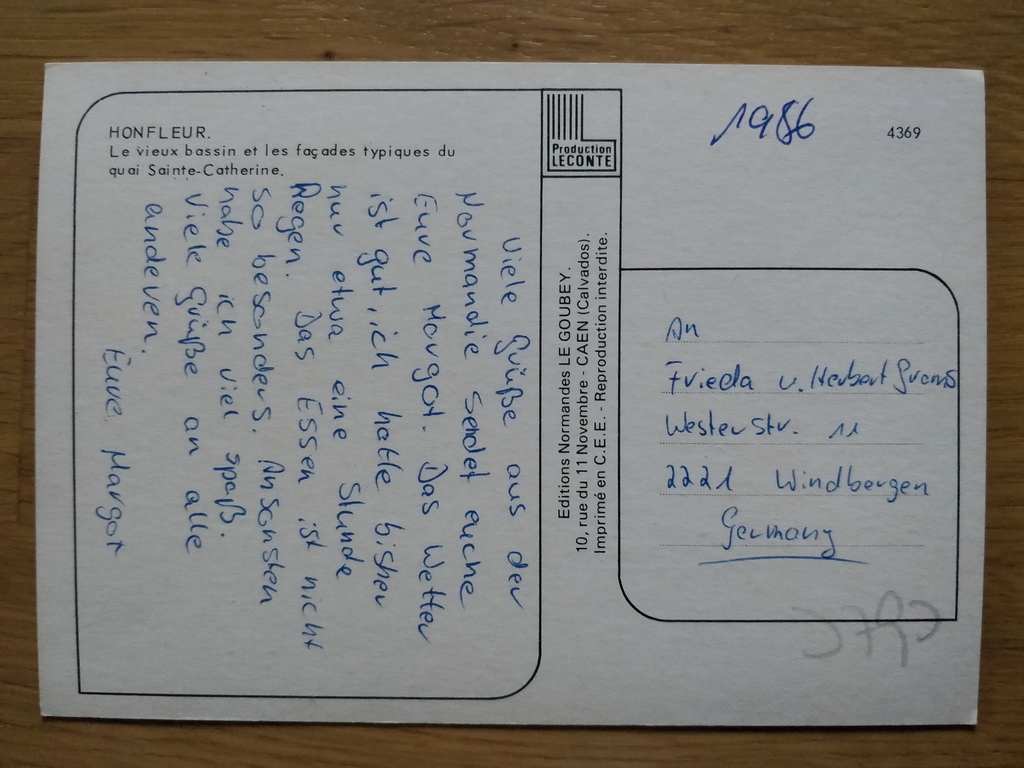 HONFLEUR.
Le vieux bassin et les façades typiques du
quai Sainte-Catherine.
Viele Grüße aus der
Normandie sendet euche
Eure Margot. Das Wetter
ist gut, ich hatte bisher
nur etwa eine Stunde
Regen. Das Essen ist nicht
so besonders. Ansonsten
habe ich viel spaß.
Viele Grüße an alle
anderen.
Eure Margot
Production
LECONTE
Editions Normandes LE GOUBEY.
10, rue du 11 Novembre - CAEN (Calvados).
Imprimé en C.E.E. - Reproduction interdite.
1986
4369
An
Frieda u. Herbert
Westerstr. 11
2221 Windbergen
Germany